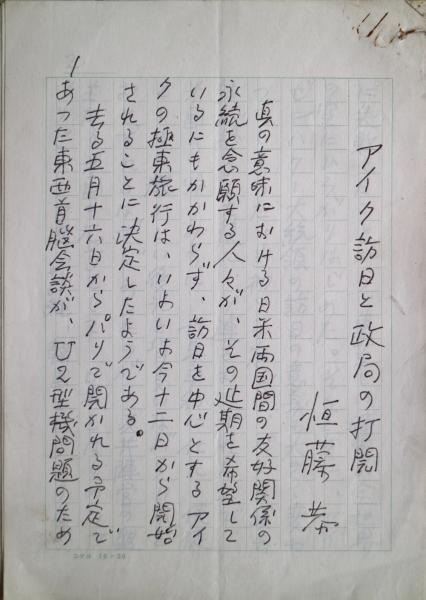 アイク訪日と政局の打開
恒藤恭
真の意味における日米両国間の友好関係の
永続を念願する人々が、その延期を希望して
いるにもかかわらず、訪日を中心とするアイ
クの極東旅行は、いよいよ今十二日から開始
されることに決定したようである。
去る五月十六日からパリで開かれる予定で
あった東西首脳会談が、U2型機問題のため
1